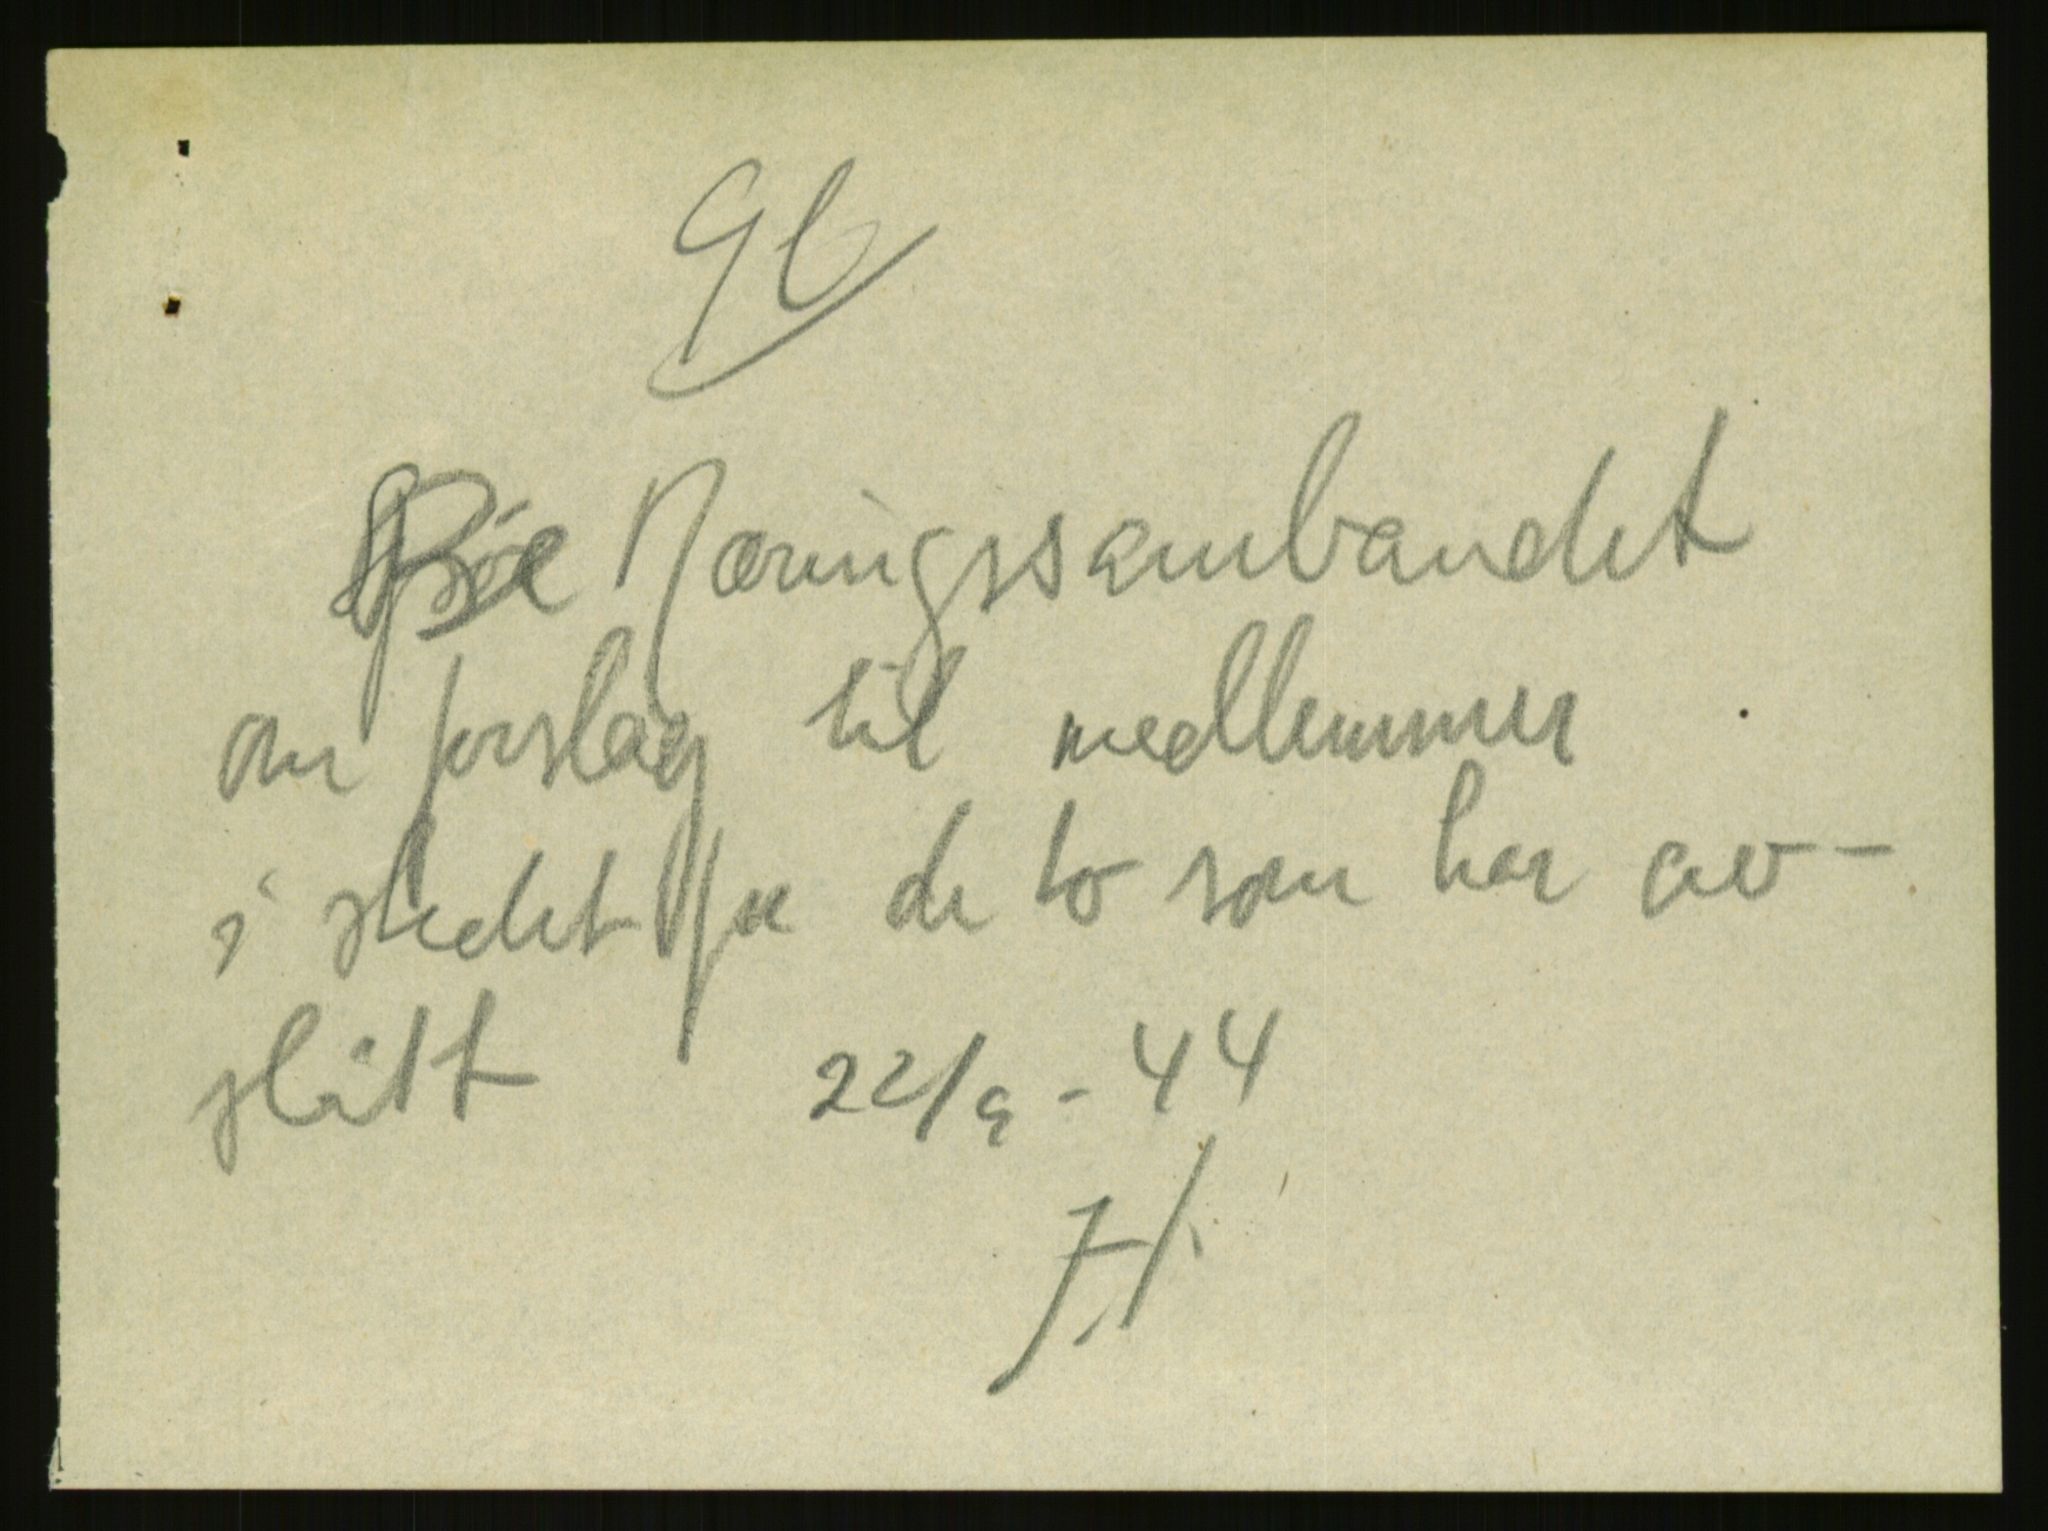 Be Næringssambandet
om forslag til medlemmer
i stedet for de to som har av-
slått 22/9-44